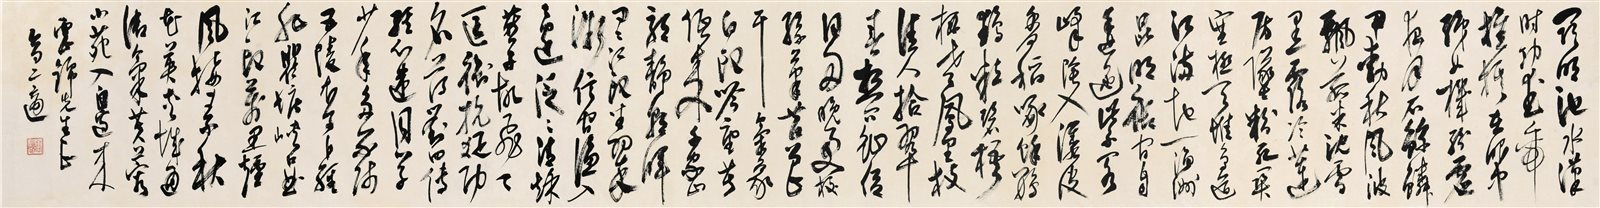 昆明池水漢
時功武帝
旌旗在眼中
織女機絲虛
夜月石鯨鱗
甲動秋風波
飄菰米沉雲
黑露冷蓮
房墜粉紅關
塞極天惟鳥道
江湖滿地一漁
翁昆吾御宿自
逶迤紫閣
峰陰入渼陂
香稻啄餘鸚
鵡粒碧梧
棲老鳳凰枝
佳人拾翠
春相問仙侶
同舟晚更移
綵筆昔曾
干氣象
白頭吟望苦
低垂千家山
郭靜朝暉
日日江樓坐翠
微信宿漁人
還泛泛清秋
燕子故飛飛
匡衡抗疏功
名薄劉向傳
經心事違同學
少年多不賤
五陵衣馬自輕
肥瞿塘峽口曲
江頭萬里煙
風接素秋
花萼夾城通
御氣芙蓉
小苑入邊愁
雲錦先生正
高二適